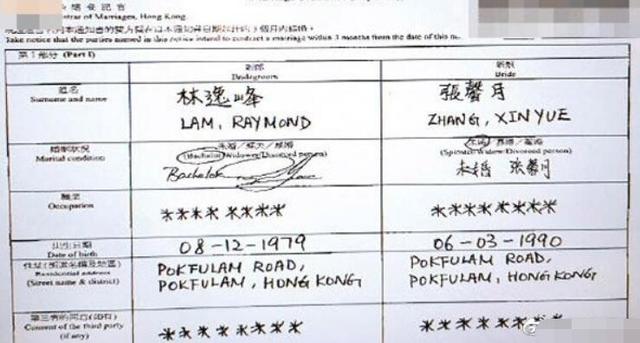 婚姻登記官
trar of Marriages, Hong Kong.
Take notice that the parties named in this notice intend to contract a marriage within 3 months from the date of this
第 I 部分 (Part I)
新郎
Bridegroom
新娘
Bride
姓名
Surname and name
林逸峰
LAM, RAYMOND
張馨月
ZHANG, XINYUE
婚姻狀況
Marital condition
未婚／鰥夫／離婚
(Bachelor/Widower/Divorced person)
Bachelor
未婚／寡婦／離婚
(Spinster/Widow/Divorced person)
未婚 張馨月
職業
Occupation
******* 
*******
出生日期
Date of birth
08-12-1979
06-03-1990
住址(街道名稱及地區)
Residential address
(Street name & district)
POKFULAM ROAD,
POKFULAM, HONG KONG
POKFULAM ROAD,
POKFULAM, HONG KONG
第三者的同意(如有)
Consent of the third party
(if any)
*******